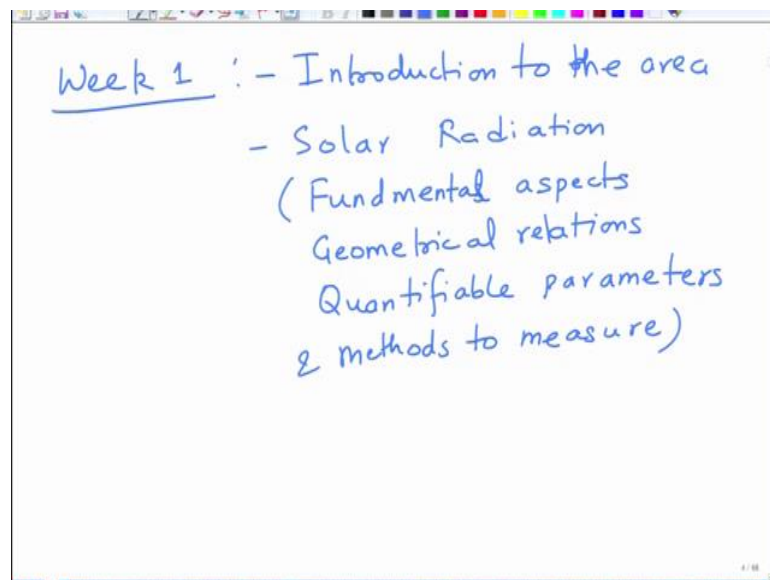 Week 1 :- Introduction to the area
- Solar Radiation
(Fundmental aspects
Geometrical relations
Quantifiable parameters
& methods to measure)